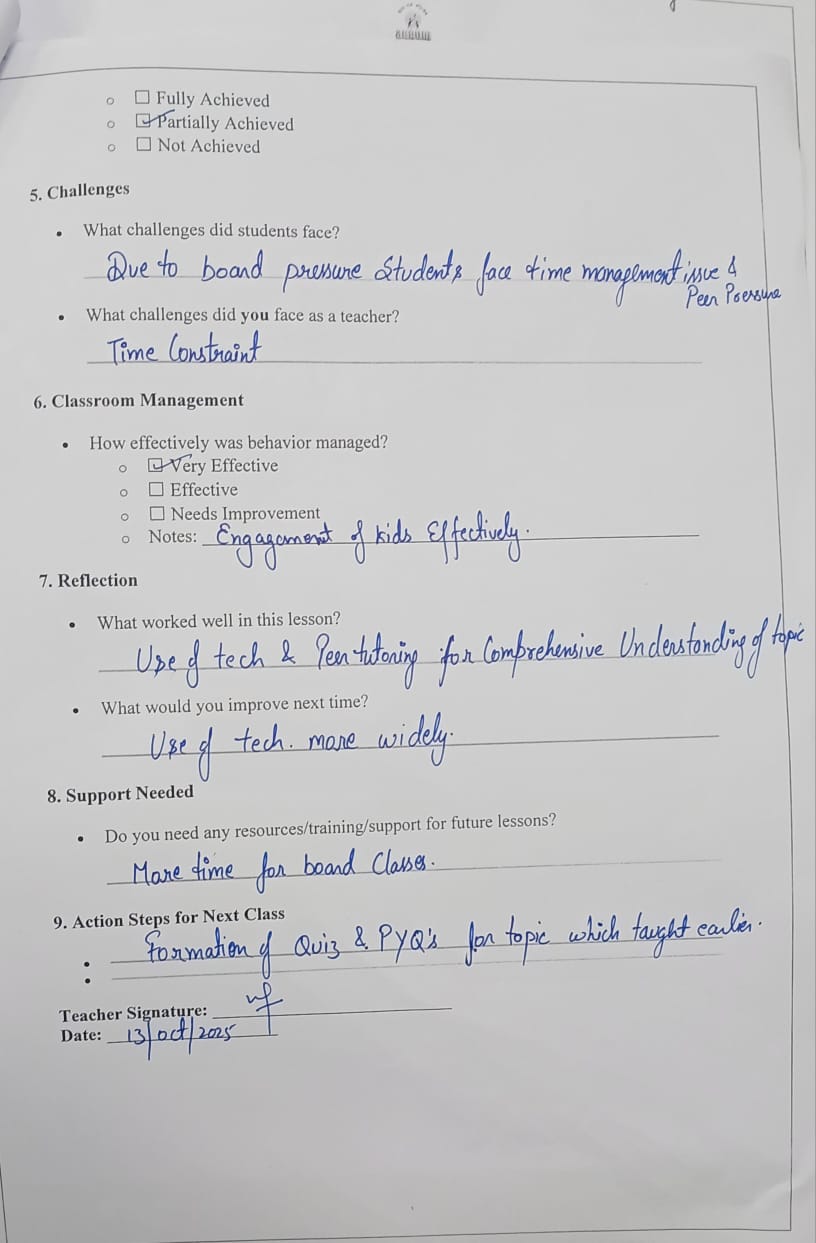 ☐ Fully Achieved
☑ Partially Achieved
☐ Not Achieved
5. Challenges
• What challenges did students face?
Due to board pressure Students face time management issue &
Peer Pressure
• What challenges did you face as a teacher?
Time Constraint
6. Classroom Management
• How effectively was behavior managed?
☑ Very Effective
☐ Effective
☐ Needs Improvement
Notes: Engagement of kids Effectively.
7. Reflection
• What worked well in this lesson?
Use of tech & Peer tutoring for Comprehensive Understanding of topic
• What would you improve next time?
Use of tech. more widely.
8. Support Needed
• Do you need any resources/training/support for future lessons?
More time for board Classes.
9. Action Steps for Next Class
• Formation of Quiz & PYQ's for topic which taught earlier.
Teacher Signature:
Date: 13/oct/2025